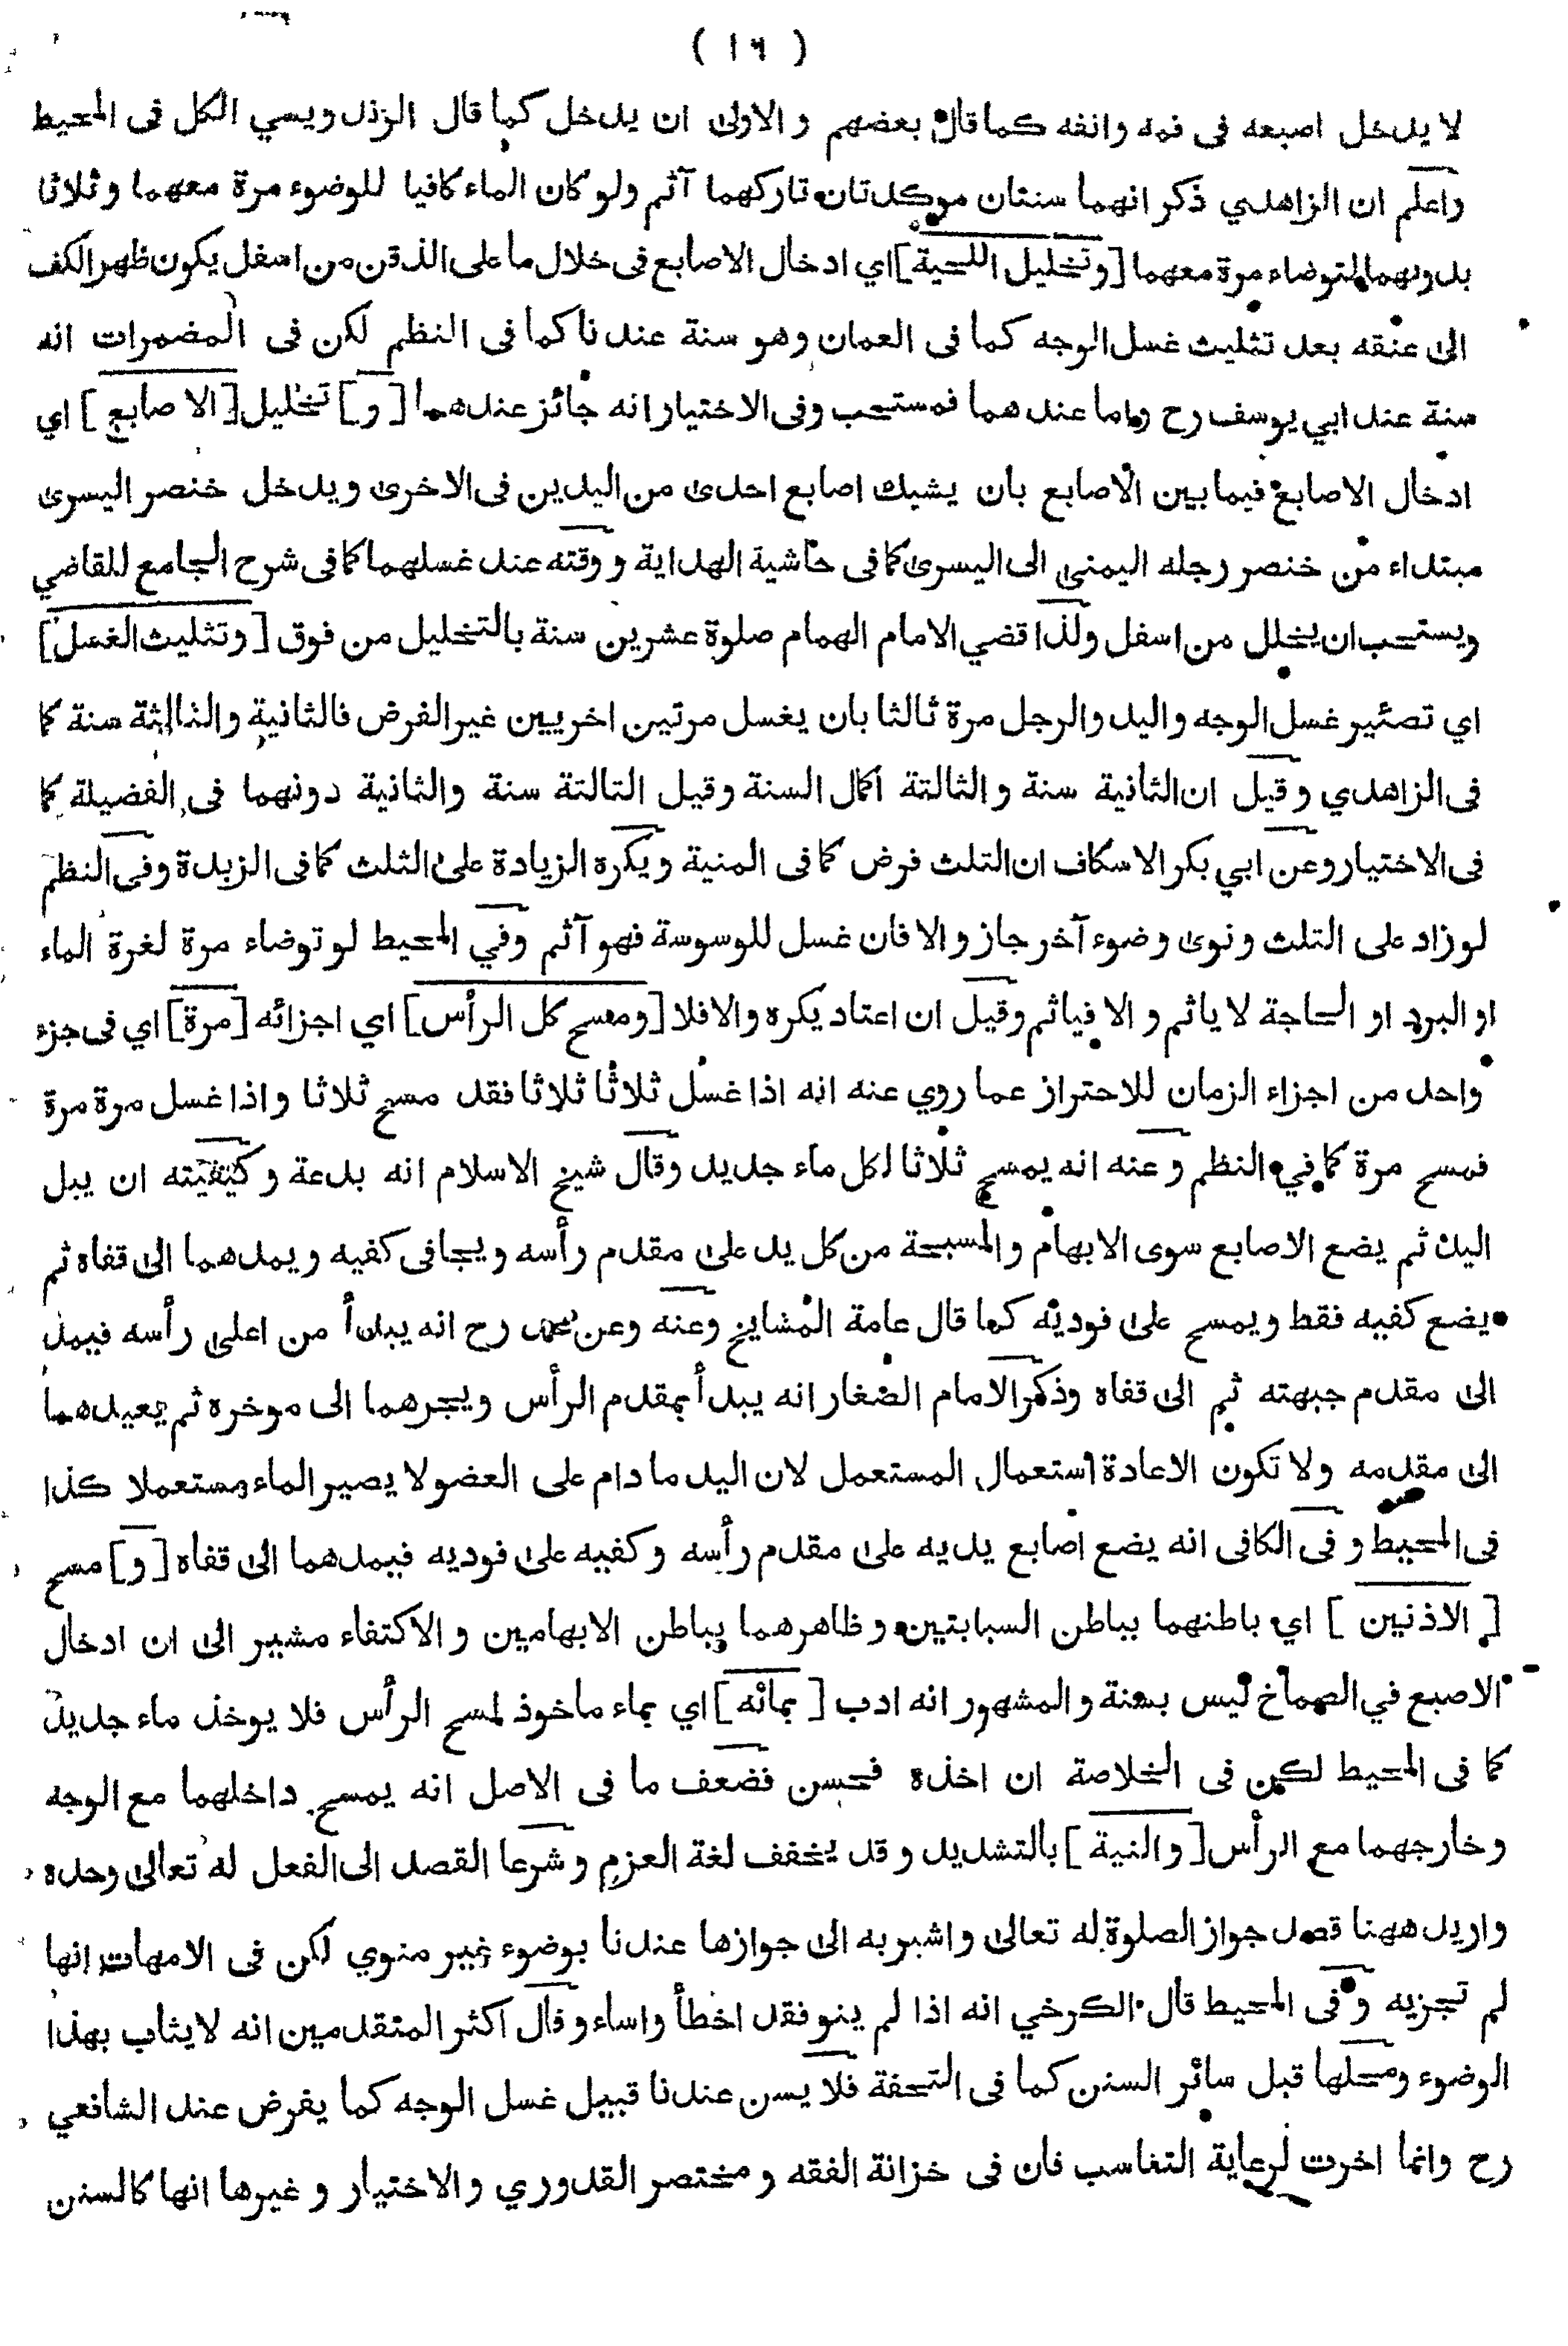 ( ١٦ )
لا يدخل اصبعه فى فمه وانفه كما قال بعضهم و الاولى ان يدخل كما قال الزند ويسي الكل فى المحيط
واعلم ان الزاهدي ذكر انهما سنتان موكدتان تاركهما آثم ولو كان الماء كافيا للوضوء مرة معهما وثلاثا
بدونهما المتوضاء مرة معهما [وتخليل اللحية] اي ادخال الاصابع فى خلال ما على الذقن من اسفل يكون ظهر الكف
الى عنقه بعد تثليث غسل الوجه كما فى العمان وهو سنة عندنا كما فى النظم لكن فى المضمرات انه
سنة عند ابي يوسف رح واما عندهما فمستحب وفى الاختيار انه جائز عندهما [و] تخليل [الاصابع] اي
ادخال الاصابع فيما بين الاصابع بان يشبك اصابع احدى من اليدين فى الاخرى ويدخل خنصر اليسرى
مبتداء من خنصر رجله اليمنى الى اليسرى كما فى حاشية الهداية و وقته عند غسلهما كما فى شرح الجامع للقاضي
ويستحب ان يخلل من اسفل ولذا قضي الامام الهمام صلوة عشرين سنة بالتخليل من فوق [وتثليث الغسل]
اي تصئير غسل الوجه واليد والرجل مرة ثالثا بان يغسل مرتين اخريين غير الفرض فالثانية والثالثة سنة كما
فى الزاهدي وقيل ان الثانية سنة والثالتة اكمال السنة وقيل التالتة سنة والثانية دونهما فى الفضيلة كما
فى الاختيار وعن ابي بكر الاسكاف ان التلث فرض كما فى المنية ويكره الزيادة على الثلث كما فى الزبدة وفى النظم
لو زاد على التلث ونوى وضوء آخر جاز والا فان غسل للوسوسة فهو آثم وفي المحيط لو توضاء مرة لغرة الماء
او البرد او الحاجة لا ياثم و الا فياثم وقيل ان اعتاد يكره والا فلا [ومسح كل الرأس] اي اجزائه [مرة] اي فى جزء
واحد من اجزاء الزمان للاحتراز عما روي عنه انه اذا غسل ثلاثا ثلاثا فقد مسح ثلاثا واذا غسل مرة مرة
فمسح مرة كما في النظم وعنه انه يمسح ثلاثا لكل ماء جديد وقال شيخ الاسلام انه بدعة وكيفيته ان يبل
اليد ثم يضع الاصابع سوى الابهام والمسبحة من كل يد على مقدم رأسه ويجافى كفيه ويمدهما الى قفاه ثم
يضع كفيه فقط ويمسح على فوديه كما قال عامة المشايخ وعنه وعن محمد رح انه يبدأ من اعلى رأسه فيمد
الى مقدم جبهته ثم الى قفاه وذكر الامام الصفار انه يبدأ بمقدم الرأس ويجرهما الى موخره ثم يعيدهما
الى مقدمه ولا تكون الاعادة استعمال المستعمل لان اليد ما دام على العضو لا يصير الماء مستعملا كذا
فى المحيط و فى الكافى انه يضع اصابع يديه على مقدم رأسه وكفيه على فوديه فيمدهما الى قفاه [و] مسح
[الاذنين] اي باطنهما بباطن السبابتين وظاهرهما بباطن الابهامين والاكتفاء مشير الى ان ادخال
الاصبع في الصماخ ليس بسنة والمشهور انه ادب [بمائه] اي بماء ماخوذ لمسح الرأس فلا يوخذ ماء جديد
كما فى المحيط لكن فى الخلاصة ان اخذه فحسن فضعف ما فى الاصل انه يمسح داخلهما مع الوجه
وخارجهما مع الرأس [والنية] بالتشديد وقد يخفف لغة العزم وشرعا القصد الى الفعل له تعالى وحده
واريد ههنا قصد جواز الصلوة له تعالى واشير به الى جوازها عندنا بوضوء غير منوي لكن فى الامهات انها
لم تجزيه وفى المحيط قال الكرخي انه اذا لم ينو فقد اخطأ واساء وقال اكثر المتقدمين انه لا يثاب بهذا
الوضوء ومحلها قبل سائر السنن كما فى التحفة فلا يسن عندنا قبيل غسل الوجه كما يفرض عند الشافعي
رح وانما اخرت لرعاية التناسب فان فى خزانة الفقه ومختصر القدوري والاختيار وغيرها انها كالسنن